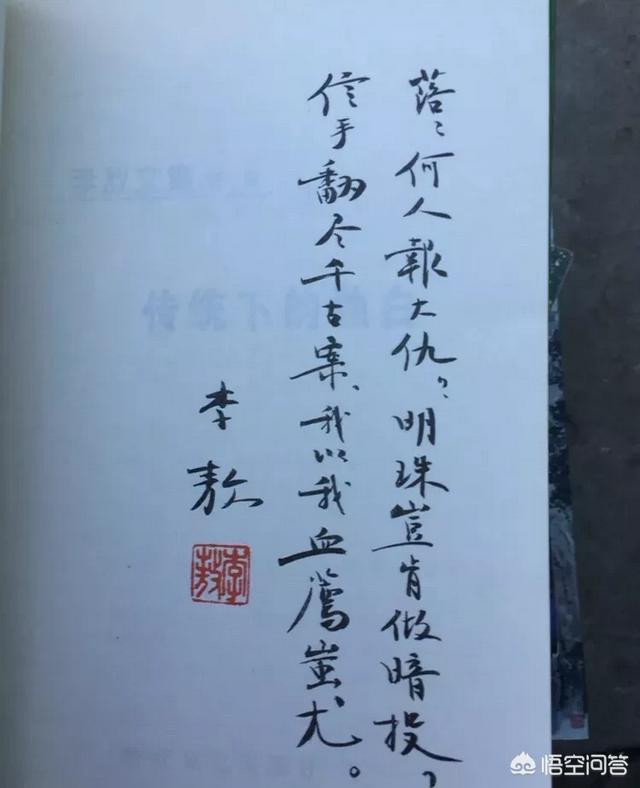 落〻何人報大仇？明珠豈肯做暗投？
信手翻尽千古案、我以我血薦蚩尤。
李敖
李敖
传统下的独白
悟空问答